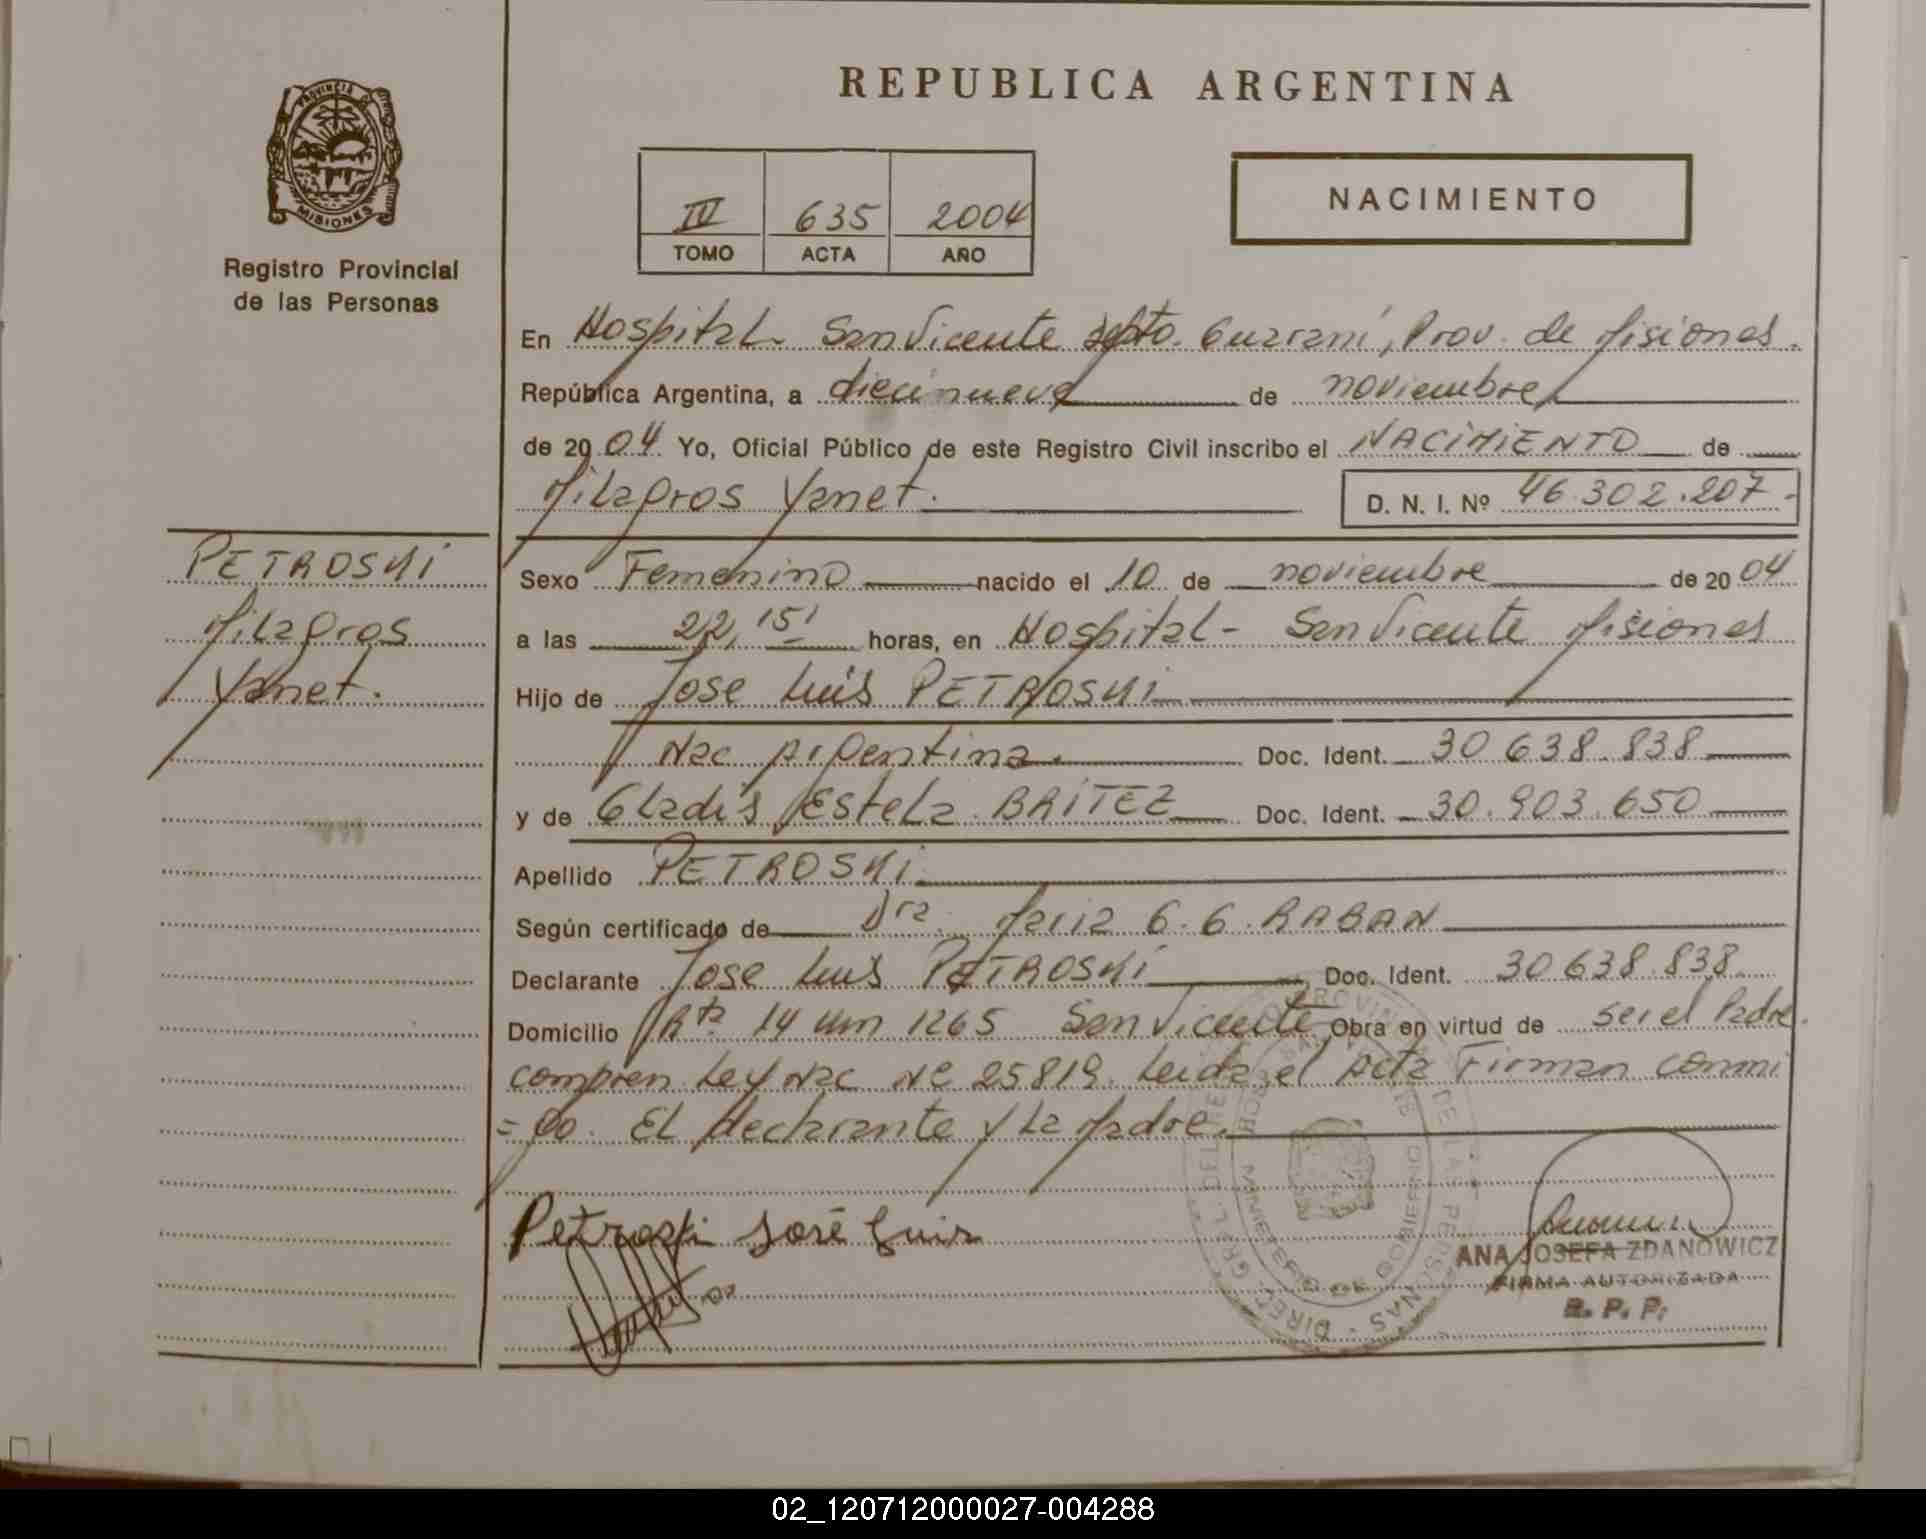 REPUBLICA ARGENTINA
PROVINCIA DE
MISIONES
Registro Provincial
de las Personas
IV 635 2004
TOMO ACTA AÑO
NACIMIENTO
En Hospital San Vicente Dpto. Guarani, Prov. de Misiones.
República Argentina, a diecinueve de noviembre
de 2004. Yo, Oficial Público de este Registro Civil inscribo el NACIMIENTO de
Milagros Yanet. D. N. I. Nº 46.302.207.-
PETROSKI
Milagros
Yanet.
Sexo Femenino nacido el 10 de noviembre de 2004
a las 22,15' horas, en Hospital - San Vicente Misiones
Hijo de Jose Luis PETROSKI
Nac Argentina. Doc. Ident. 30.638.838
y de Gladis Estela BRITEZ Doc. Ident. 30.903.650
Apellido PETROSKI
Según certificado de Dra. Maria G. G. RABAN
Declarante Jose Luis PETROSKI Doc. Ident. 30.638.838
Domicilio Rta 14 Km 1265 San Vicente Obra en virtud de ser el Padre.
compren Ley Nac Nº 25819. Leida el Acta Firman conmi
=go. El declarante y La Madre.
Petroski José Luis
DIREC. GRAL. DEL REG. PROVINCIAL DE LAS PERSONAS
MINISTERIO DE GOBIERNO
ANA JOSEFA ZDANOWICZ
FIRMA AUTORIZADA
R. P. P.
02_120712000027-004288